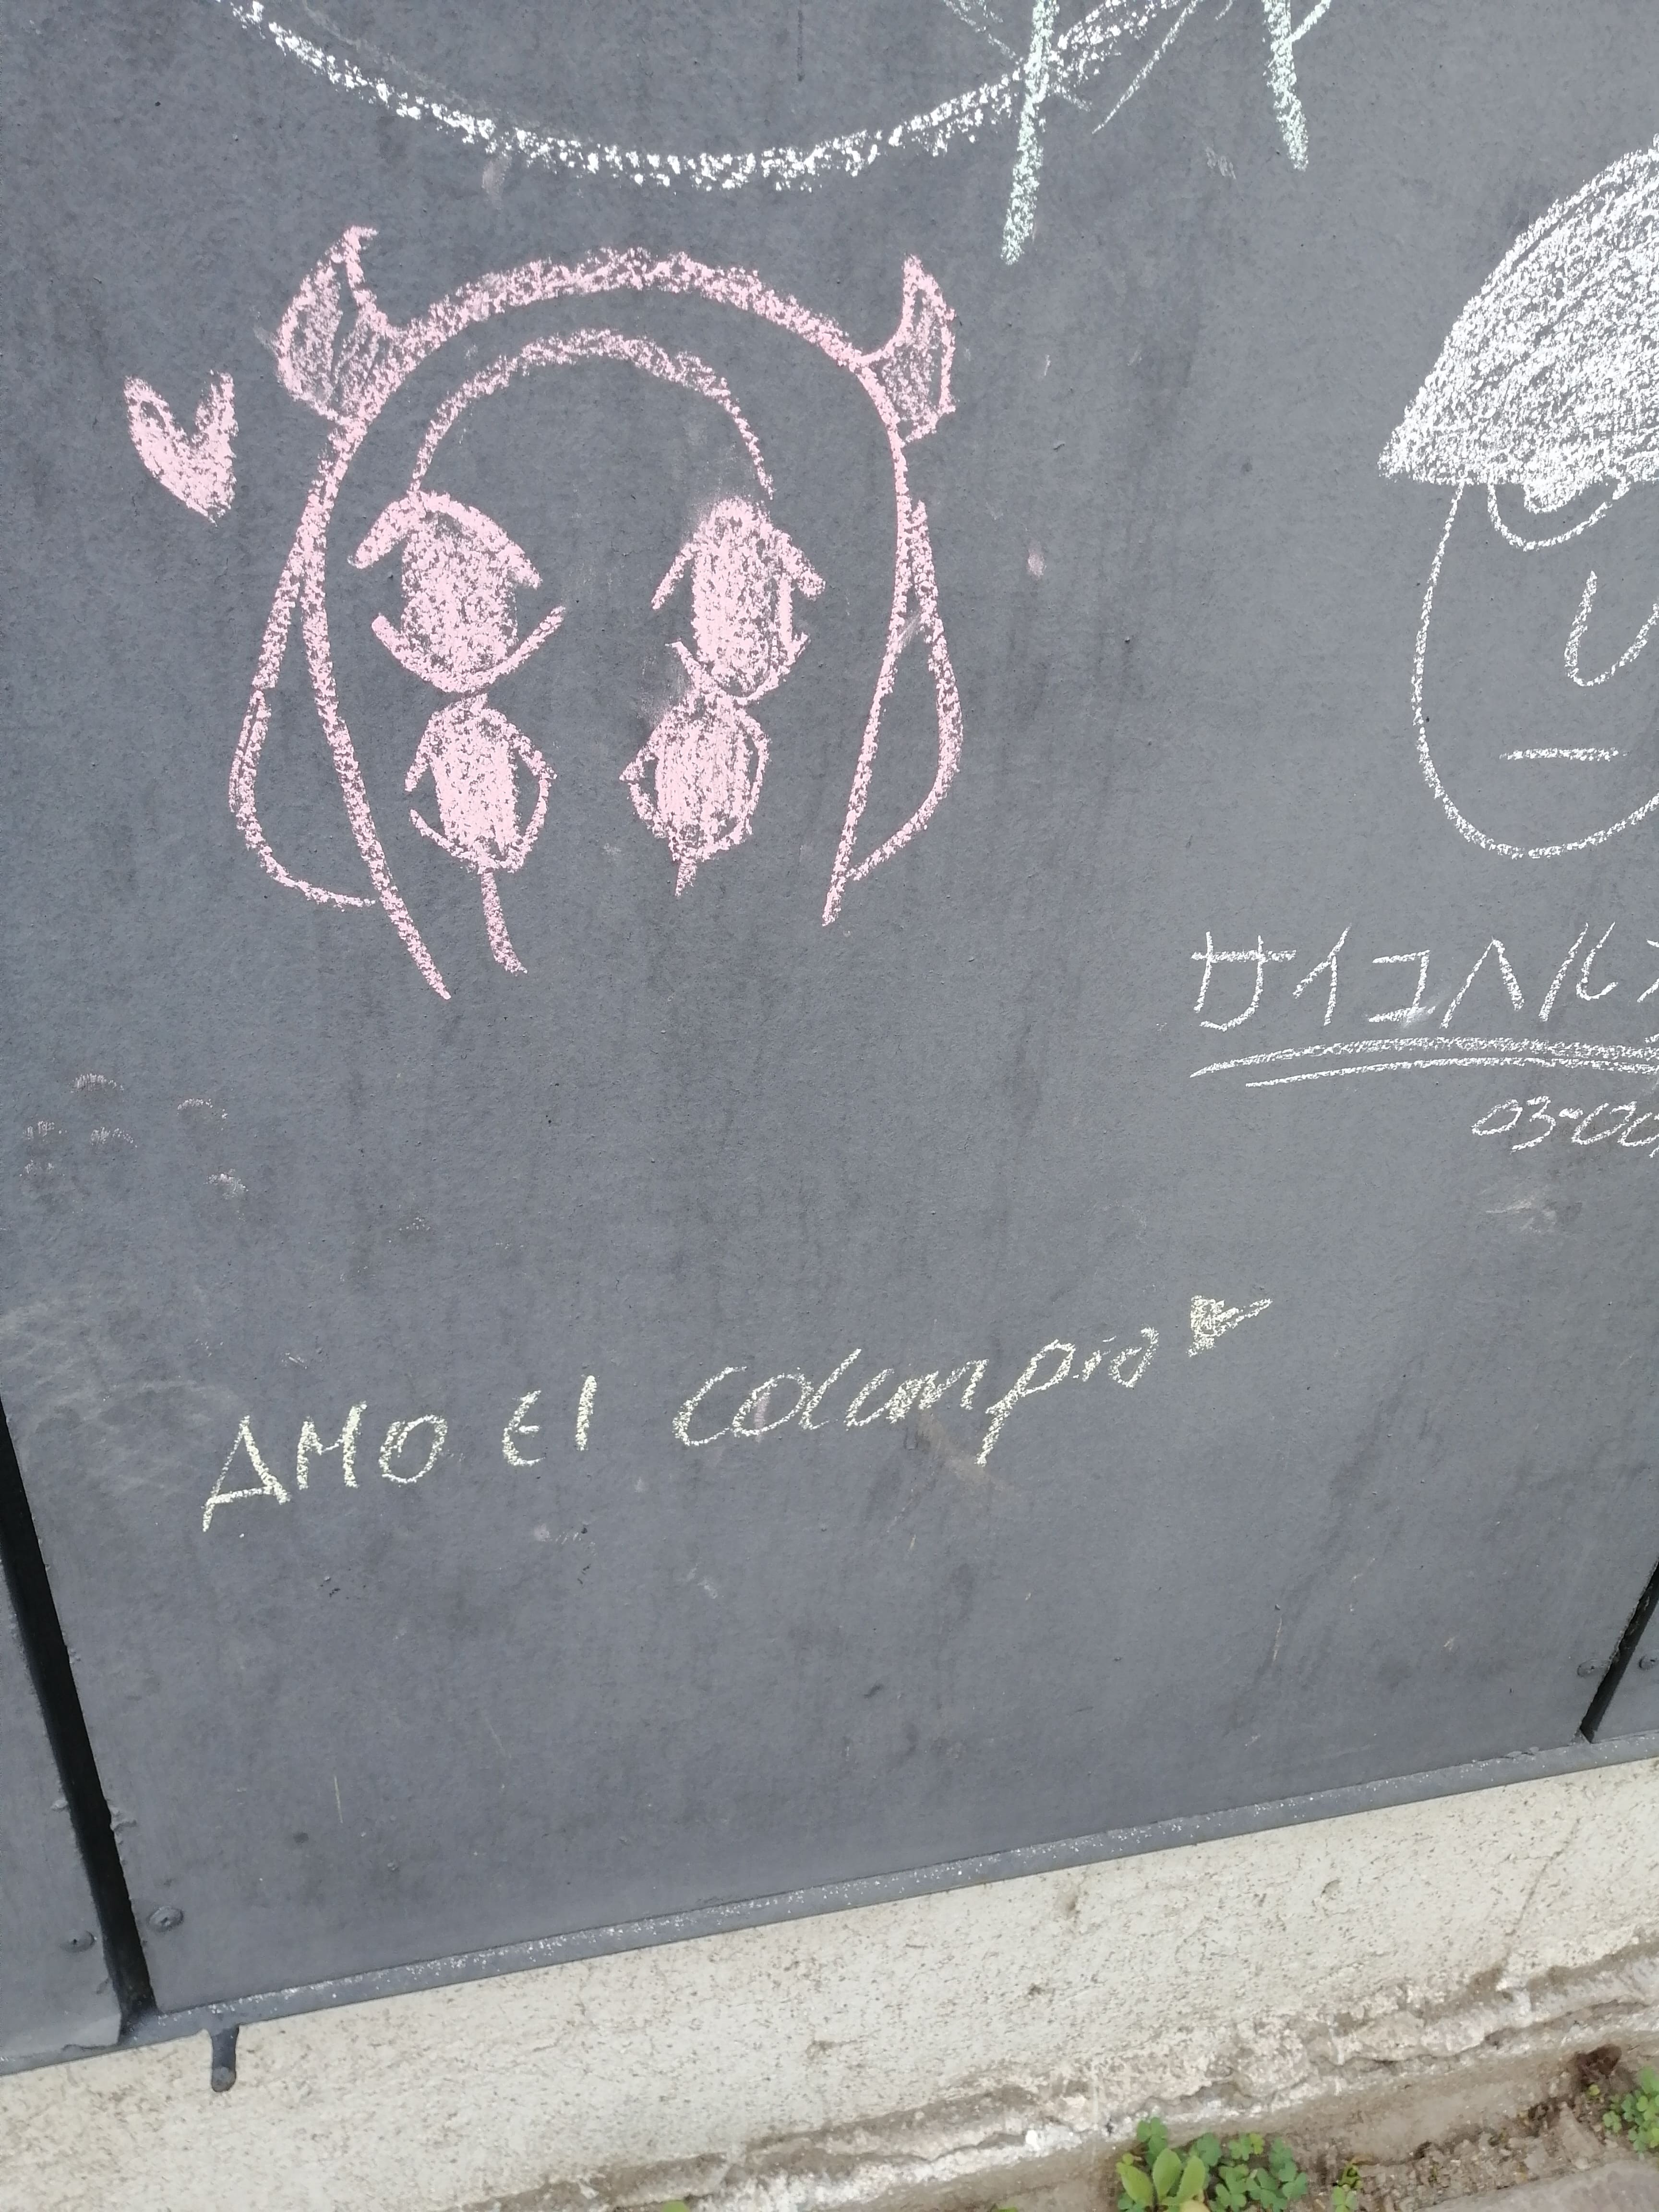 サイコヘル
03-
AMO El columpio